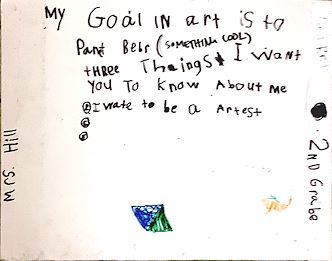 My Goal IN art is to
Pant Bebr (SOMETHING COOL)
three Thaings I want
you To Know About Me
I wate to be a Artest
Mrs. Hill
2ND Grabe